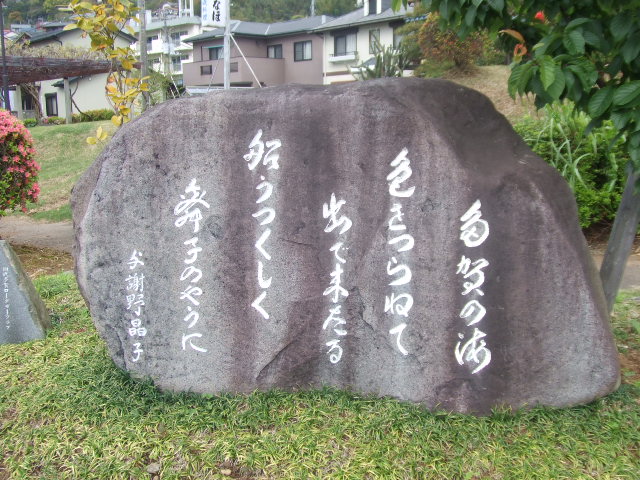 多賀の海
色さつらねて
出で来たる
船うつくしく
舞子のやうに
与謝野晶子
なほ